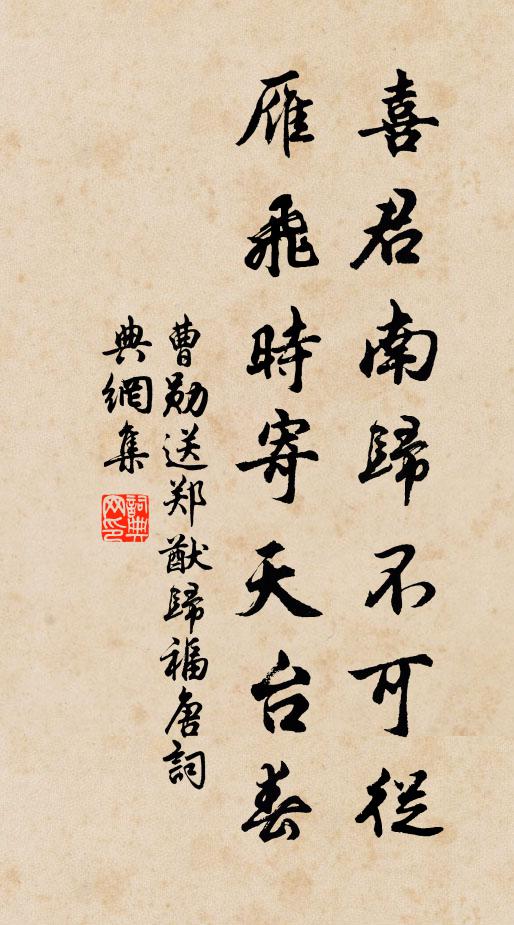 喜君南歸不可從
雁飛時寄天台春
曹勛送郑猷歸福唐詞
典網集
詞典
网印